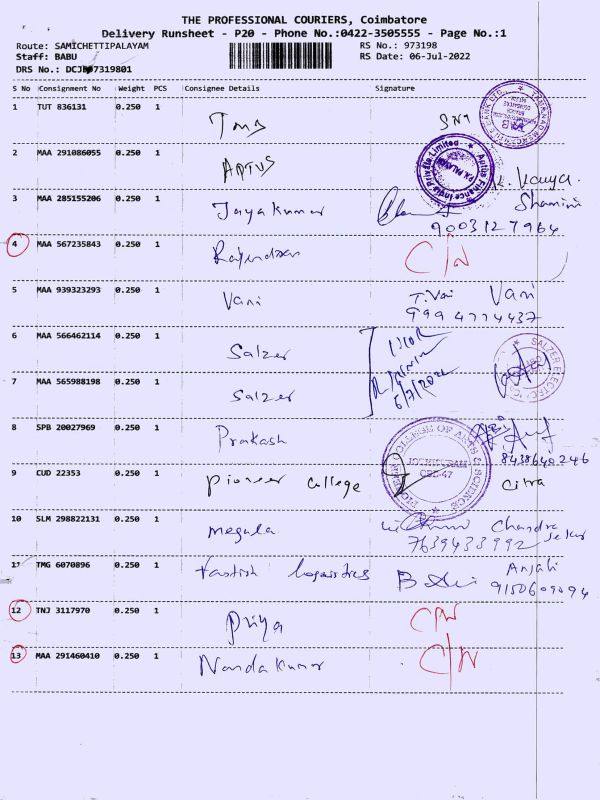 THE PROFESSIONAL COURIERS, Coimbatore
Delivery Runsheet - P20 - Phone No.:0422-3505555 - Page No.:1
Route: SAMICHETTIPALAYAM RS No.: 973198
Staff: BABU RS Date: 06-Jul-2022
DRS No.:
S No Consignment No Weight PCS Consignee Details Signature
1 TUT 836131 0.250 1 Tmb
2 MAA 291086055 0.250 1 APTUS
Aptus Finance India Private Limited
3 MAA 285155206 0.250 1 Jayakumar
9003127964
4 MAA 567235843 0.250 1 Rajendran
5 MAA 939323293 0.250 1 Vani Vani
9994774437
6 MAA 566462114 0.250 1 Salzer
7 MAA 565988198 0.250 1 Salzer
6/7/2022
8 SPB 20027969 0.250 1 Prakash
8438640246
9 CUD 22353 0.250 1 pioneer college Citra
10 SLM 298822131 0.250 1 megala Chandra
7639433992
11 TMG 6070896 0.250 1 logisitics Anjali
9150609094
12 TNJ 3117970 0.250 1 Priya
13 MAA 291460410 0.250 1 Nandakumar